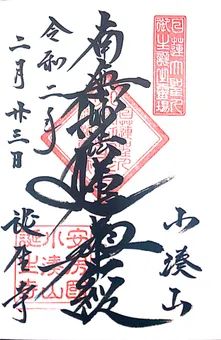 日蓮大聖人
御生誕霊場
小湊山
南無妙法蓮華経
令和二年
二月廿三日
誕生寺
安房国
小湊山
誕生寺